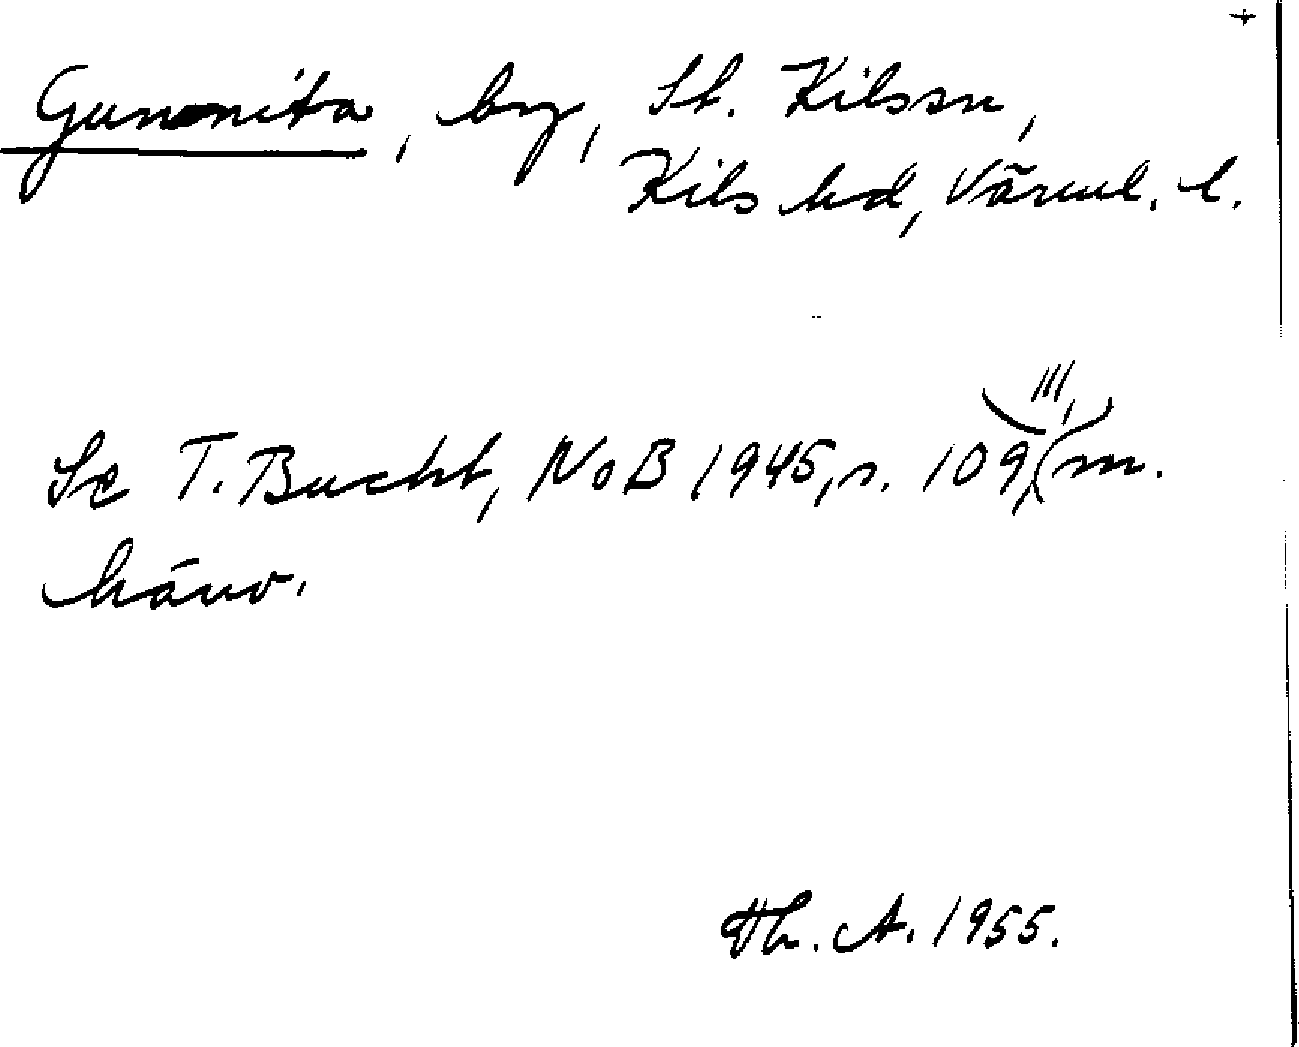 +
Gunnita, by, St. Kilssn,
Kils hd, Värml. l.
Se T. Bucht, NoB 1945, s. 109, 111, m.
hänv.
Th. A. 1955.